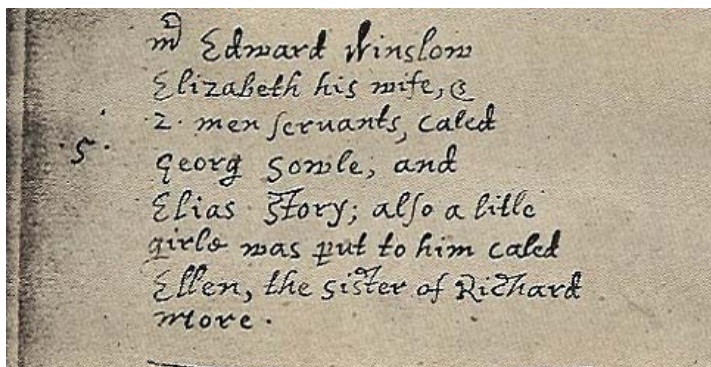 mr Edward Winslow
Elizabeth his wife, &
·2· men servants, caled
·5·
Georg Sowle, and
Elias Story; also a litle
girle was put to him caled
Ellen, the sister of Richard
More·